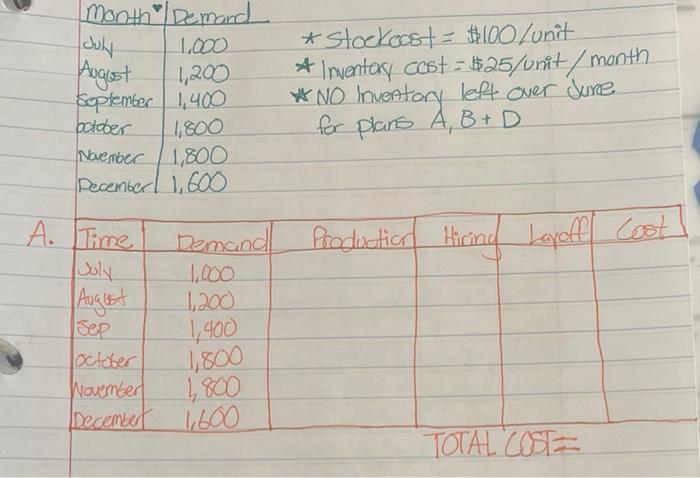 Month Demand
July 1,000 * Stockcost = $100/unit
August 1,200 * Inventory cost = $25/unit/month
September 1,400 * NO Inventory left over June
October 1,800 for plans A, B + D
November 1,800
December 1,600
A. Time Demand Production Hiring Layoff Cost
July 1,000
August 1,200
Sep 1,400
October 1,800
November 1,800
December 1,600
TOTAL COST =